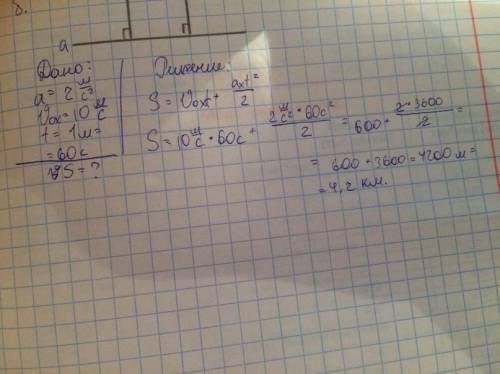 8.
a
Дано:
a = 2 м/с²
Vox = 10 м/с
t = 1м =
= 60с
S = ?
Решение:
S = Voxt + axt²/2
S = 10 м/с · 60с + 2 м/с² · 60с²/2 = 600 + 2·3600/2 =
= 600 + 3600 = 4200 м =
= 4,2 км.